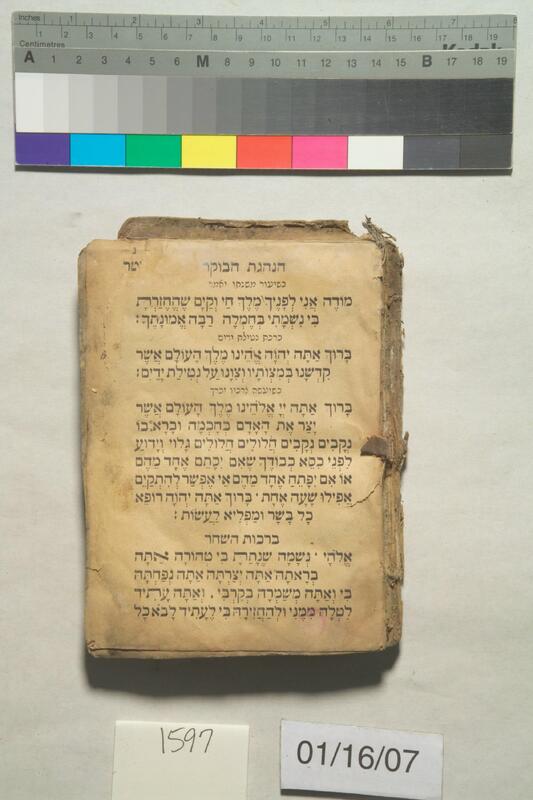 Inches 1 2 3 4 5 6 7 8
1 2 3 4 5 6 7 8 9 10 11 12 13 14 15 16 17 18 19
Centimetres
A 1 2 3 4 5 6 M 8 9 10 11 12 13 14 15 B 17 18 19
הנהגת הבוקר
כשיעור משנתו יאמר
מודֶה אֲנִי לְפָנֶיךָ מֶלֶךְ חַי וְקַיָם שֶׁהֶחֱזַרְתָּ
בִּי נִשְׁמָתִי בְּחֶמְלָה רַבָּה אֱמוּנָתֶךָ׃
ברכת נטילת ידים
בָּרוּךְ אַתָּה יְהוָֹה אֱלֹהֵינוּ מֶלֶךְ הָעוֹלָם אֲשֶׁר
קִדְשָׁנוּ בְּמִצְוֹתָיו וְצִוָנוּ עַל נְטִילַת יָדַיִם׃
בָּרוּךְ אַתָּה יְיָ אֱלֹהֵינוּ מֶלֶךְ הָעוֹלָם אֲשֶׁר
יָצַר אֶת הָאָדָם בְּחָכְמָה וּבָרָא בוֹ
נְקָבִים נְקָבִים חֲלוּלִים חֲלוּלִים גָּלוּי וְיָדוּעַ
לִפְנֵי כִסֵא כְבוֹדֶךָ שֶׁאִם יִסָּתֵם אֶחָד מֵהֶם
אוֹ אִם יִפָּתֵחַ אֶחָד מֵהֶם אִי אֶפְשַׁר לְהִתְקַיֵּם
אֲפִילוּ שָׁעָה אֶחָת · בָּרוּךְ אַתָּה יְהוָֹה רוֹפֵא
כָל בָּשָׂר וּמַפְלִיא לַעֲשׂוֹת ׃
ברכות השחר
אֱלֹהַי · נְשָׁמָה שֶׁנָּתַתָּ בִּי טְהוֹרָה אַתָּה
בְרָאתָהּ אַתָּה יְצַרְתָּהּ אַתָּה נְפַחְתָּהּ
בִּי וְאַתָּה מְשַׁמְּרָהּ בְּקִרְבִּי . וְאַתָּה עָתִיד
לִטְּלָהּ מִמֶּנִּי וּלְהַחֲזִירָהּ בִּי לֶעָתִיד לָבֹא כָּל
1597
01/16/07